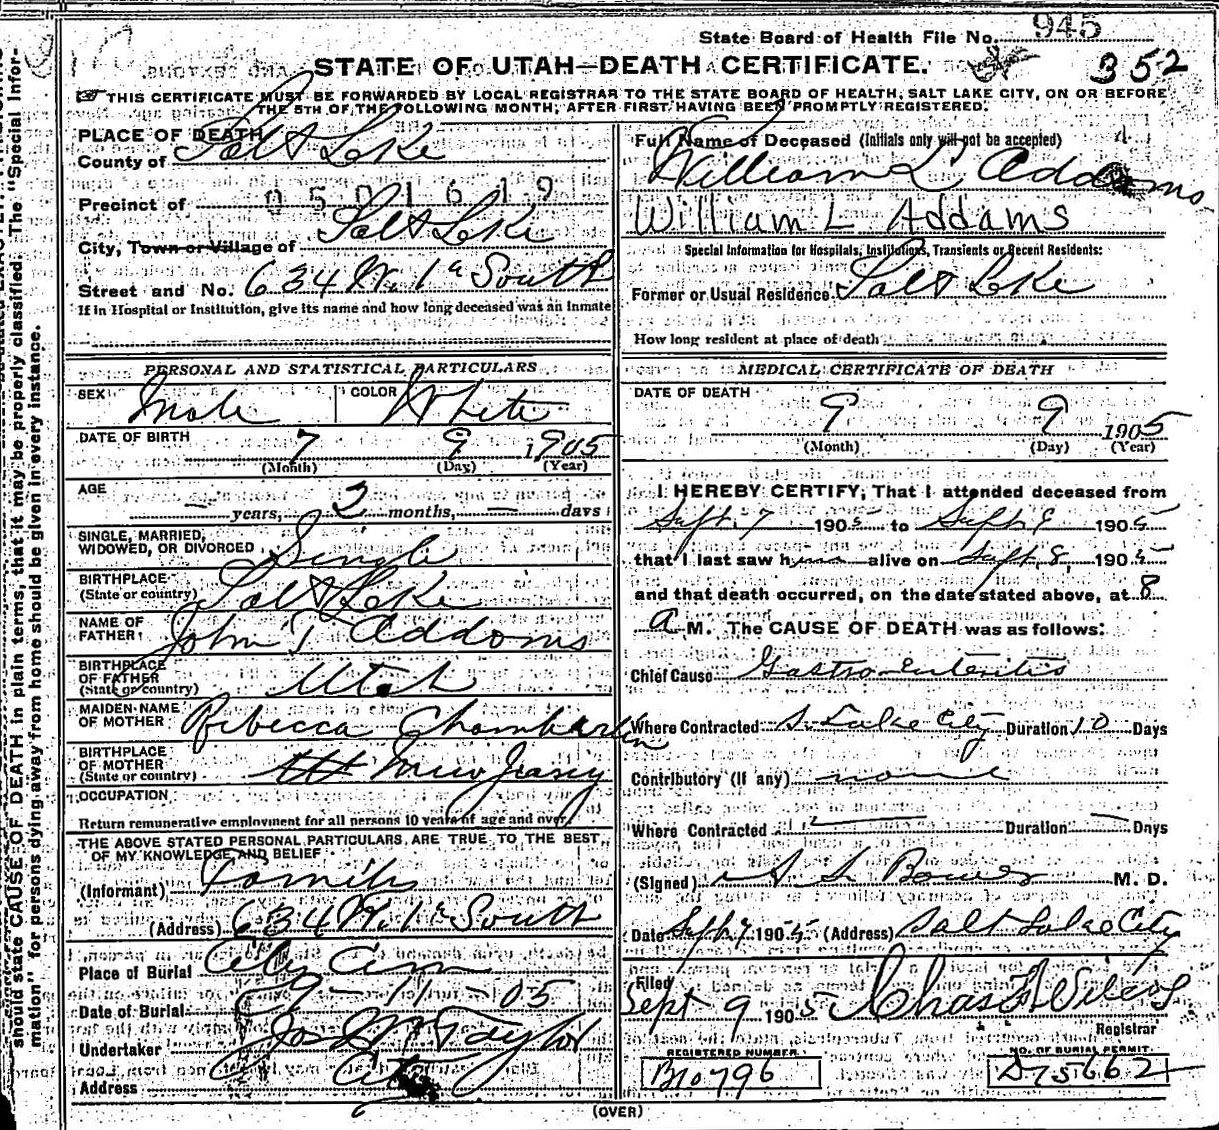 State Board of Health File No. 945
352
STATE OF UTAH—DEATH CERTIFICATE.
THIS CERTIFICATE MUST BE FORWARDED BY LOCAL REGISTRAR TO THE STATE BOARD OF HEALTH, SALT LAKE CITY, ON OR BEFORE
THE 5TH OF THE FOLLOWING MONTH, AFTER FIRST HAVING BEEN PROMPTLY REGISTERED.
PLACE OF DEATH
County of Salt Lake
Precinct of 0501619
City, Town or Village of Salt Lake
Street and No. 634 W. 1st South
If in Hospital or Institution, give its name and how long deceased was an inmate
PERSONAL AND STATISTICAL PARTICULARS
SEX Male COLOR White
DATE OF BIRTH 7 9 1905
(Month) (Day) (Year)
AGE
— years, 2 months, — days
SINGLE, MARRIED,
WIDOWED, OR DIVORCED Single
BIRTHPLACE
(State or country) Salt Lake
NAME OF
FATHER John T Addams
BIRTHPLACE
OF FATHER
(State or country) Utah
MAIDEN NAME
OF MOTHER Rebecca Chamberlin
BIRTHPLACE
OF MOTHER
(State or country) New Jersey
OCCUPATION
Return remunerative employment for all persons 10 years of age and over
THE ABOVE STATED PERSONAL PARTICULARS ARE TRUE TO THE BEST
OF MY KNOWLEDGE AND BELIEF
(Informant) Family
(Address) 634 W. 1st South
Place of Burial City Cem
Date of Burial 9-11-05
Undertaker Jos Wm Taylor
Address City
Full Name of Deceased (Initials only will not be accepted)
William L Addams
William L Addams
Special Information for Hospitals, Institutions, Transients or Recent Residents:
Former or Usual Residence Salt Lake
How long resident at place of death
MEDICAL CERTIFICATE OF DEATH
DATE OF DEATH
9 9 1905
(Month) (Day) (Year)
I HEREBY CERTIFY, That I attended deceased from
Sept. 7 1905 to Sept. 9 1905
that I last saw him alive on Sept. 8, 1905
and that death occurred, on the date stated above, at 8
A M. The CAUSE OF DEATH was as follows:
Chief Cause Gastro Enteritis
Where Contracted S. Lake City Duration 10 Days
Contributory (If any) none
Where Contracted Duration — Days
(Signed) Bower M. D.
Date Sept 9 1905 (Address) Salt Lake City
Filed
Sept 9 1905 Chas
Registrar
REGISTERED NUMBER. NO. OF BURIAL PERMIT.
B10796 D75662
(OVER)
should state CAUSE OF DEATH in plain terms, that it may be properly classified. The "Special Infor-
mation" for persons dying away from home should be given in every instance.